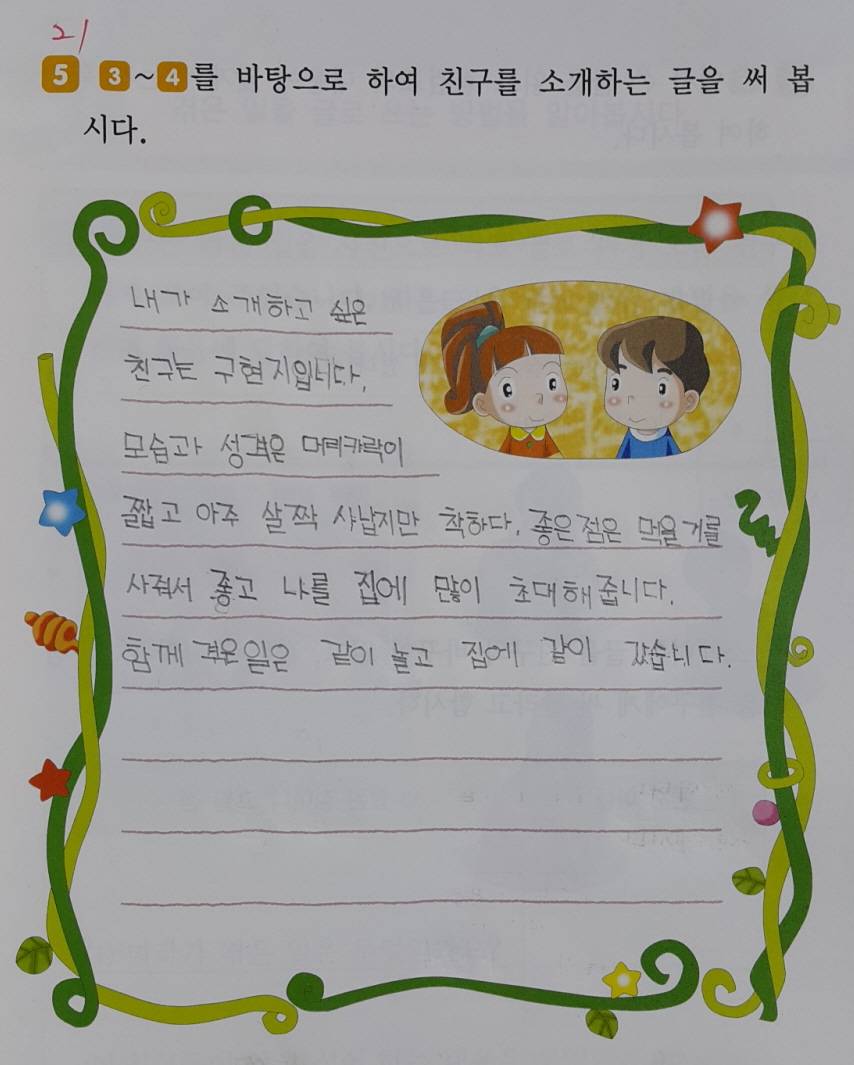 21
5 3~4를 바탕으로 하여 친구를 소개하는 글을 써 봅
시다.
내가 소개하고 싶은
친구는 구현지입니다.
모습과 성격은 머리카락이
짧고 아주 살짝 사납지만 착하다. 좋은점은 먹을거를
사줘서 좋고 나를 집에 많이 초대해줍니다.
함께 겪은일은 같이 놀고 집에 같이 갔습니다.